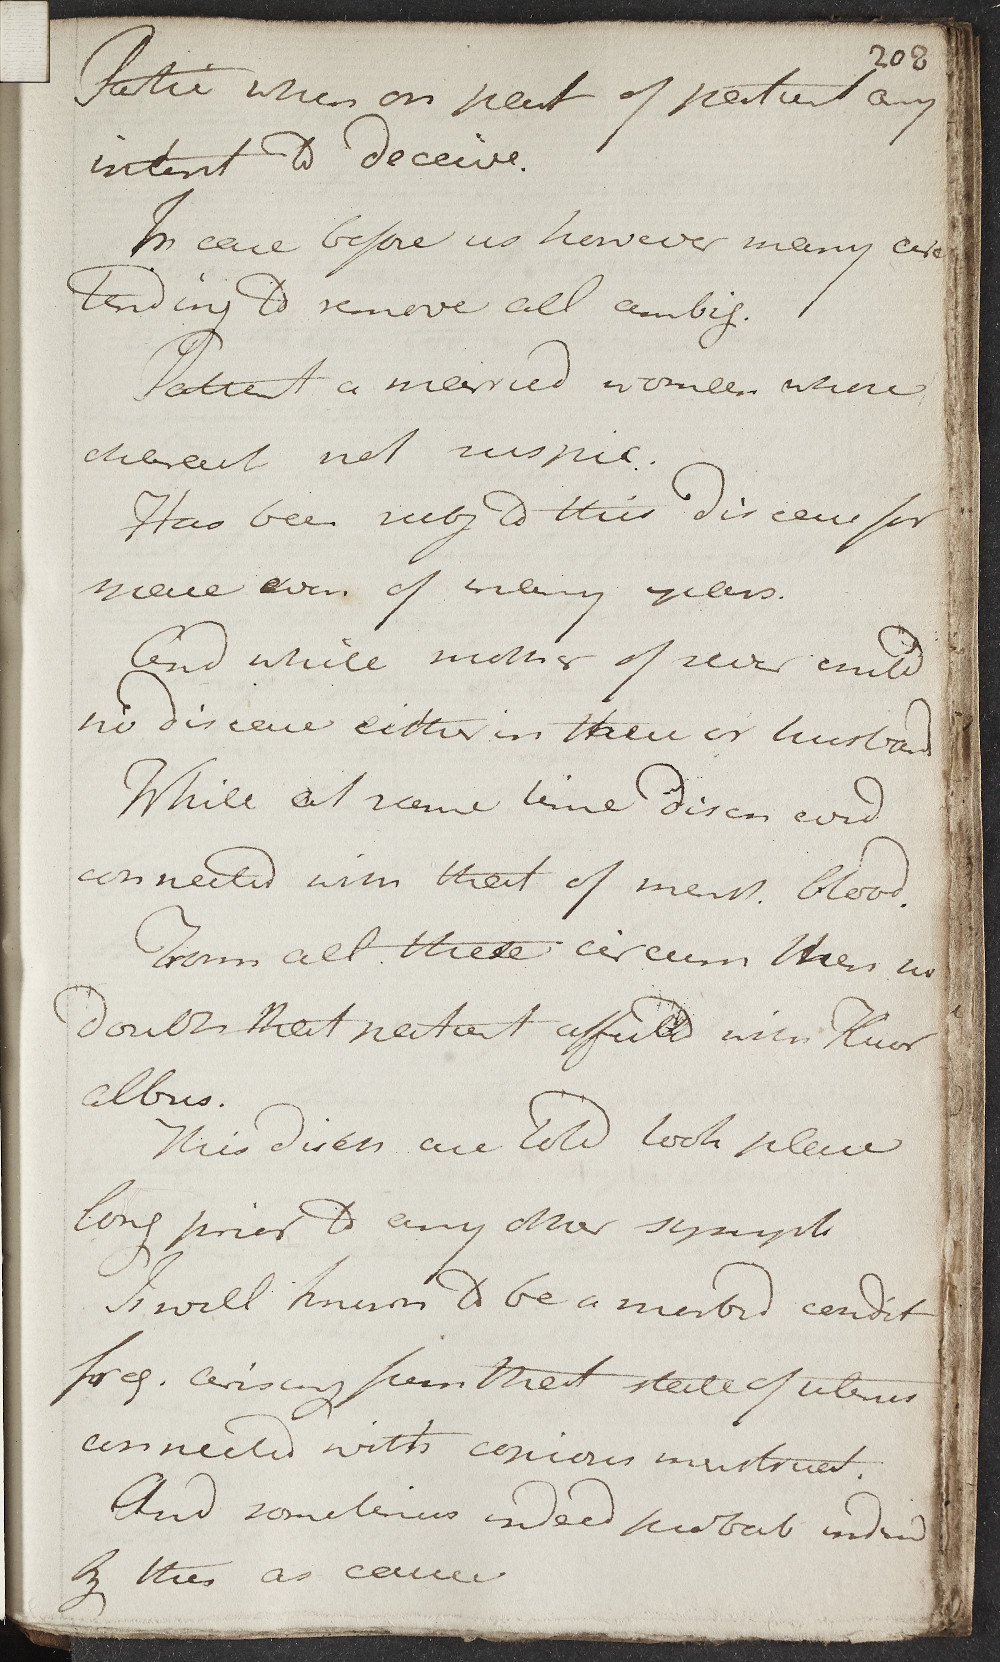 208
Partic when on part of patient any
intent to deceive.
In case before us however many circ
tending to remove all ambig.
Patient a married woman whose
charact not suspic.
Has been subj to this disease for
space even of many years.
And while mother of sever child
no disease either in them or husband
While at same time disch evid
connected with that of menst. blood.
From all these circum then no
doubt that patient afflictd with Fluor
albus.
This disch are told took place
long prior to any other sympt
Is well known to be a morbid condit
freq. arising from that state of uterus
connected with copious menstruat.
And sometimes indeed probab induc
By this as cause